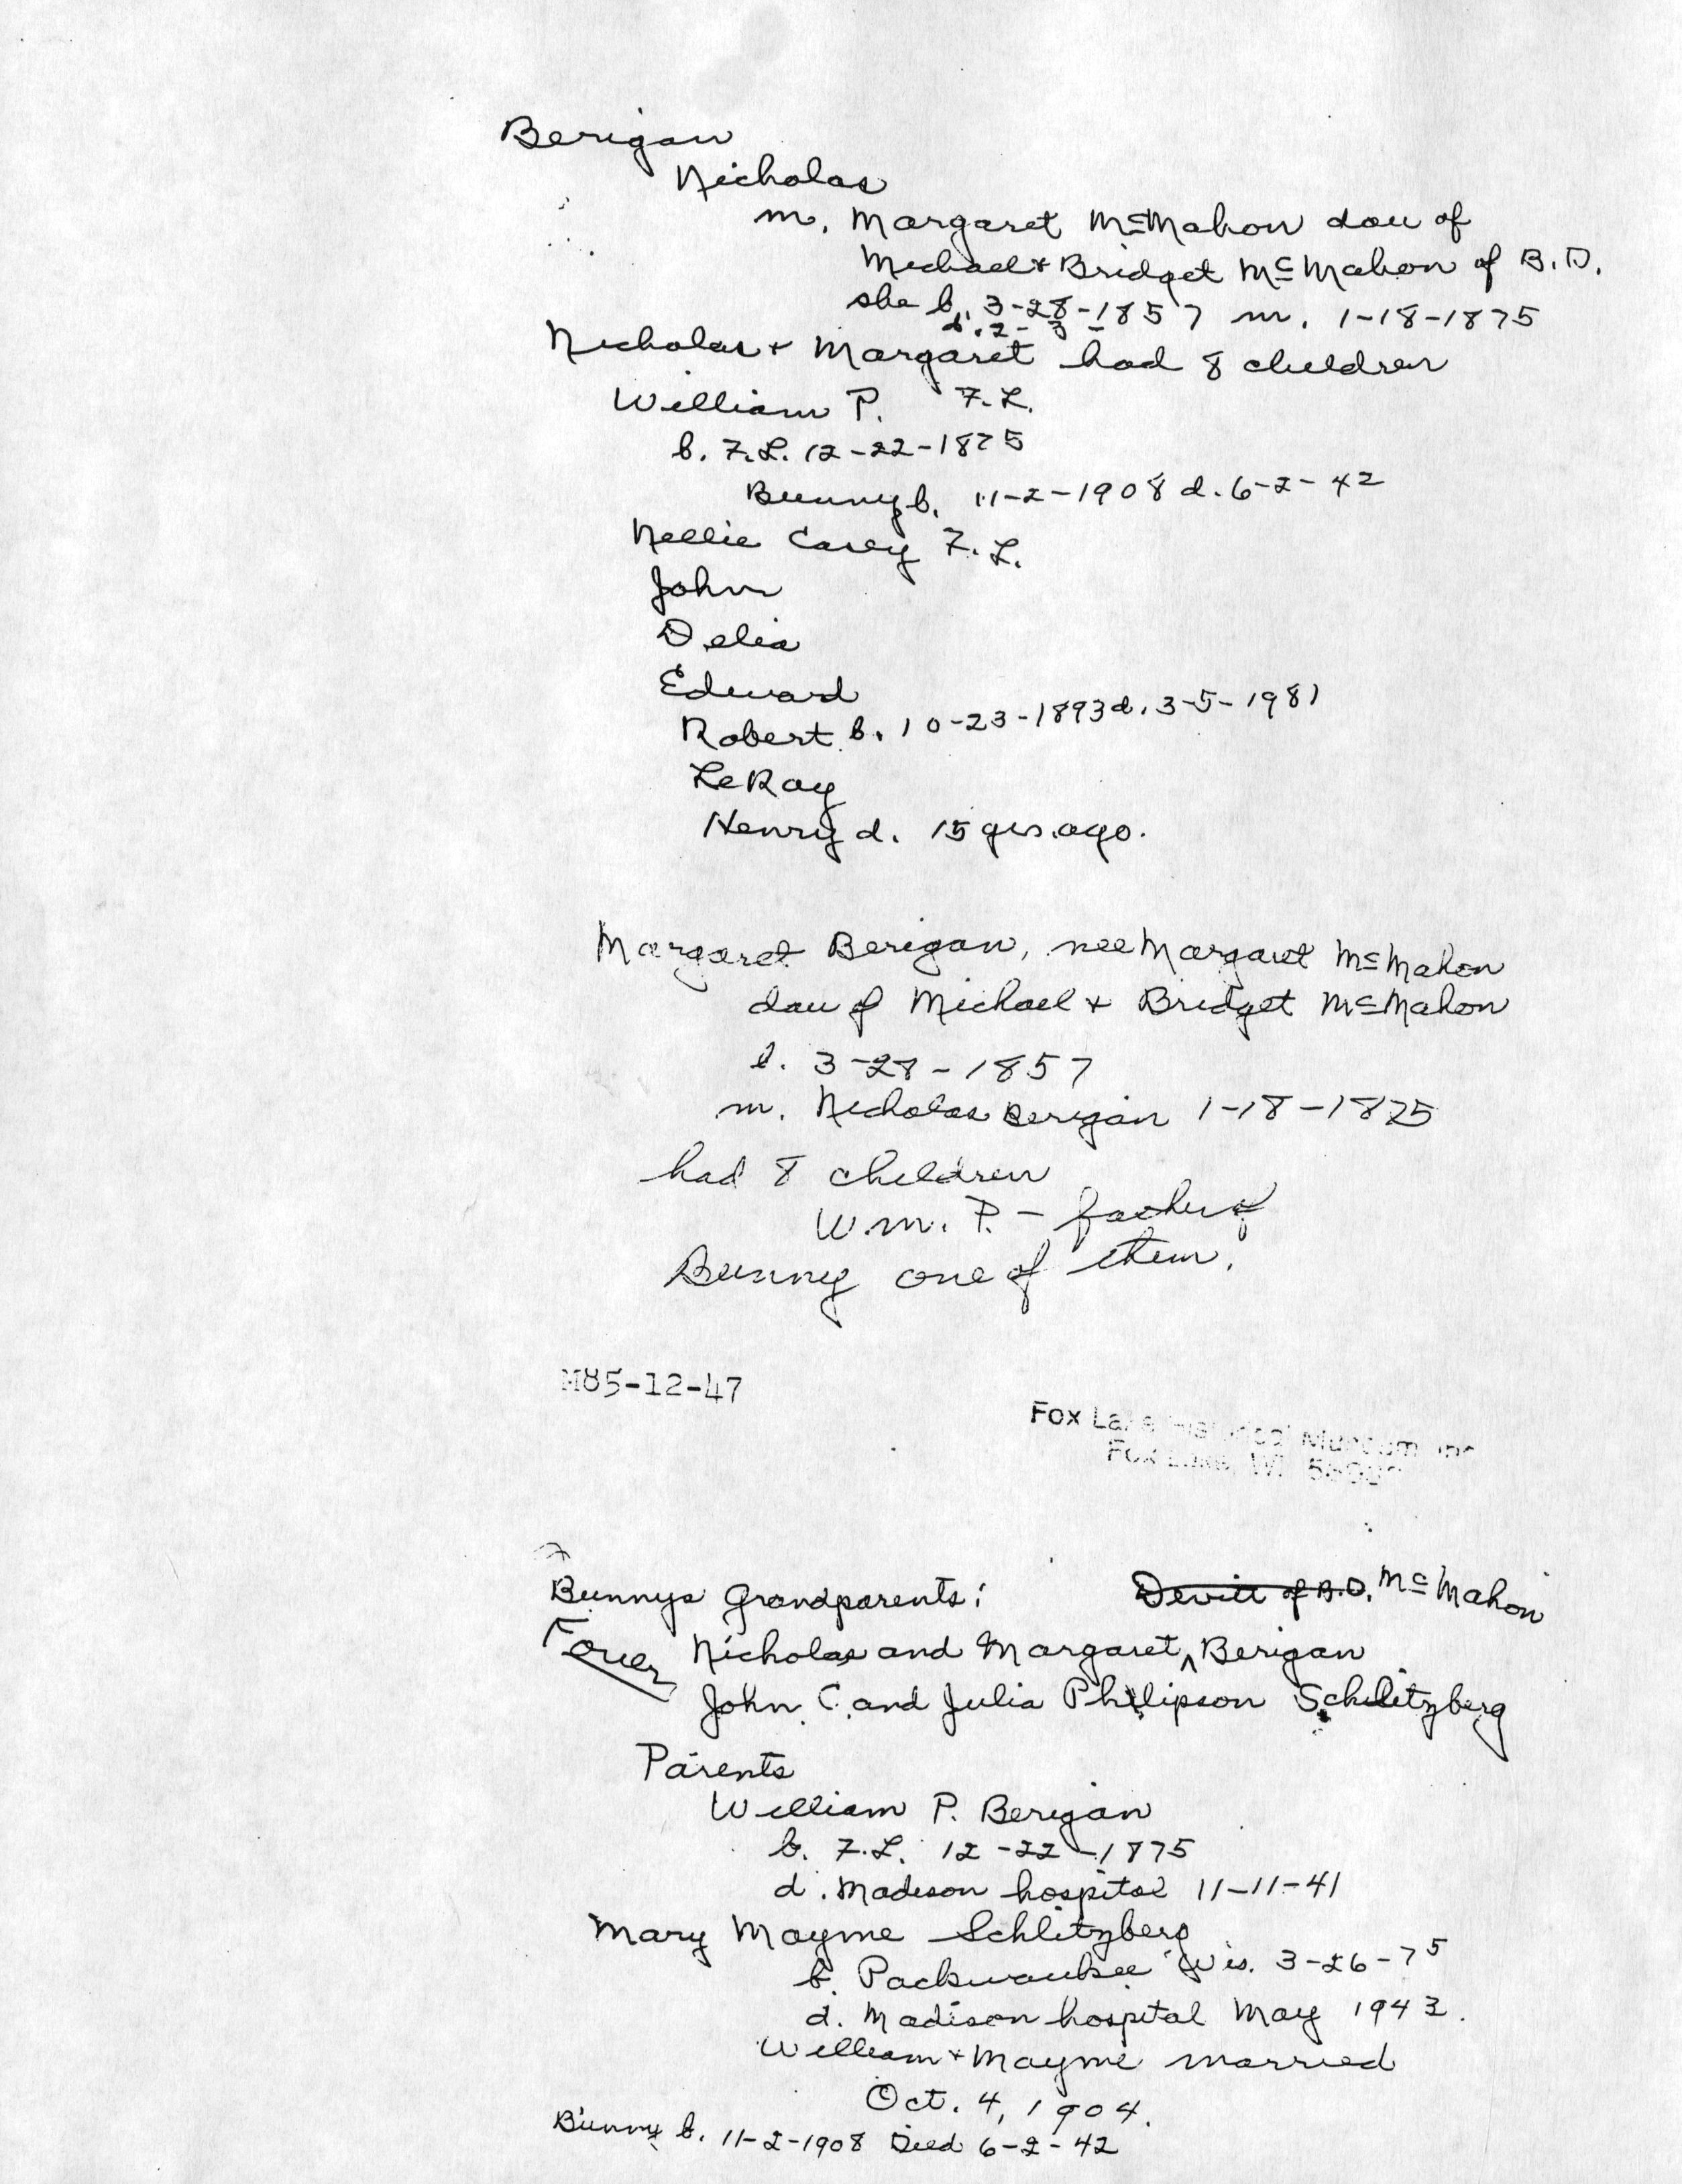 Berigan
Nicholas
m. Margaret McMahon dau of
Michael + Bridget McMahon of B.D.
she b. 3-28-1857 m. 1-18-1875
d. 2-3-
Nicholas + Margaret had 8 children
William P. F.L.
b. F.L. 12-22-1875
Bunny b. 11-2-1908 d. 6-2-42
Nellie Casey F.L.
John
Delia
Edward
Robert b. 10-23-1893 d. 3-5-1981
LeRoy
Henry d. 15 yrs. ago.
Margaret Berigan, nee Margaret McMahon
dau of Michael + Bridget McMahon
b. 3-28-1857
m. Nicholas Berigan 1-18-1875
had 8 children
Wm. P. - father of
Bunny one of them.
M85-12-47
Fox Lake Historical Museum Inc
Fox Lake, WI
Bunnys Grandparents: Devitt of B.D. McMahon
over Nicholas and Margaret ^ Berigan
John C. and Julia Philipson Schlitzberg
Parents
William P. Berigan
b. F.L. 12-22-1875
d. Madison hospital 11-11-41
Mary Mayme Schlitzberg
b. Packwaukee Wis. 3-26-75
d. Madison hospital May 1943.
William + Mayme married
Oct. 4, 1904.
Bunny b. 11-2-1908 Died 6-2-42